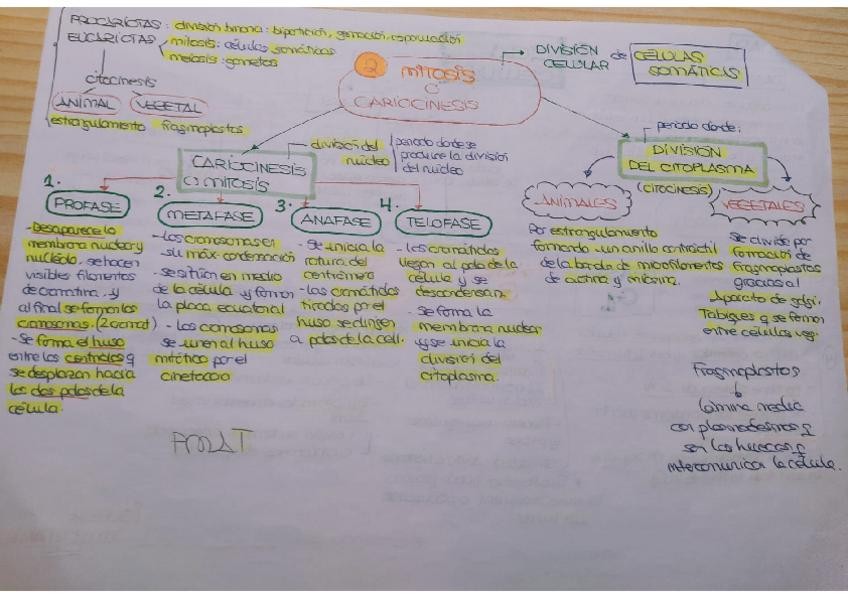 PROCARIOTAS: división binaria: bipartición, gemación, esporulación
EUCARIOTAS
mitosis: células somáticas
meiosis: gametos
citocinesis
ANIMAL
VEGETAL
estrangulamiento
fragmoplastos
2
MITOSIS
O
CARIOCINESIS
DIVISIÓN
CELULAR
de
CÉLULAS
SOMÁTICAS
CARIOCINESIS
O MITOSIS
división del
núcleo
periodo donde se
produce la división
del núcleo
periodo donde:
DIVISIÓN
DEL CITOPLASMA
(citocinesis)
1.
PROFASE
- Desaparece la
membrana nuclear y
nucléolo, se hacen
visibles filamentos
de cromatina. y
al final se forman los
cromosomas. (2 cromat)
- Se forma el huso
entre los centriolos q
se desplazan hacia
los dos polos de la
célula.
2.
METAFASE
- Los cromosomas en
su máx. condensación
- Se sitúan en medio
de la célula y forman
la placa ecuatorial
- Los cromosomas
se unen al huso
mitótico por el
cinetocoro
3.
ANAFASE
- Se inicia la
rotura del
centrómero
- Las cromátidas
tiradas por el
huso se dirigen
a polos de la cell.
4.
TELOFASE
- Las cromátidas
llegan al polo de la
célula y se
descondensan.
- Se forma la
membrana nuclear
y se inicia la
división del
citoplasma.
ANIMALES
Por estrangulamiento
formando un anillo contráctil
de la banda de microfilamentos
de actina y miosina.
VEGETALES
Se divide por
formación de
fragmoplastos
gracias al
Aparato de golgi.
Tabiques q se forman
entre células veg.
Fragmoplastos
Lámina media
con plasmodesmos q
son los huecos q
intercomunica la célula.
PMAT